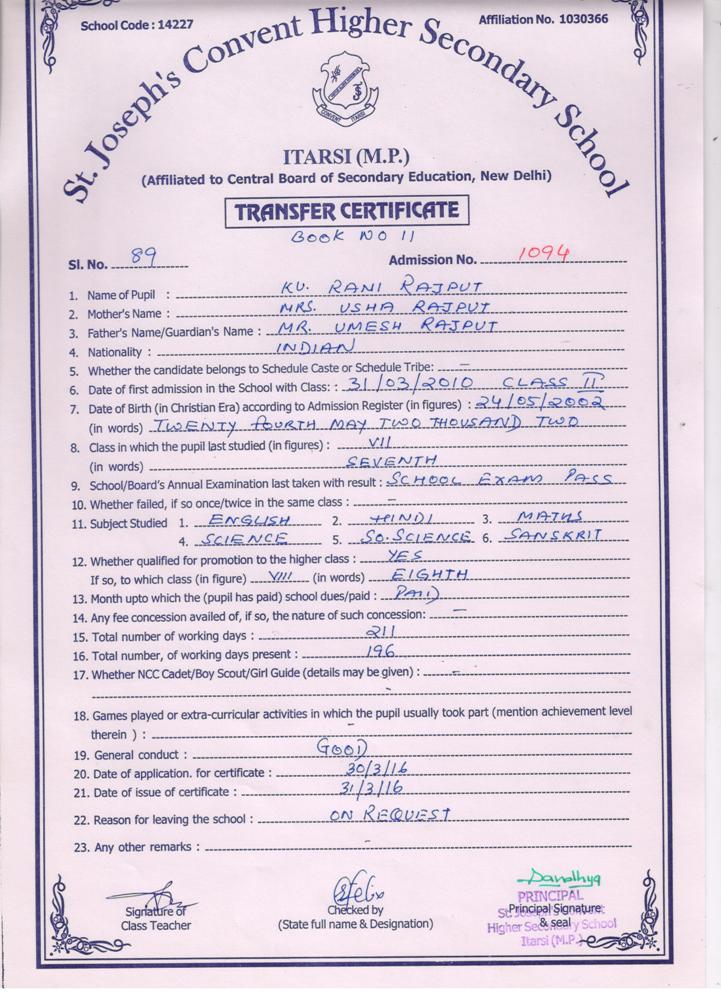 School Code : 14227
Affiliation No. 1030366
St. Joseph's Convent Higher Secondary School
CONVENT ITARSI
ITARSI (M.P.)
(Affiliated to Central Board of Secondary Education, New Delhi)
TRANSFER CERTIFICATE
BOOK NO 11
Sl. No. 89 Admission No. 1094
1. Name of Pupil : KU. RANI RAJPUT
2. Mother's Name : MRS. USHA RAJPUT
3. Father's Name/Guardian's Name : MR. UMESH RAJPUT
4. Nationality : INDIAN
5. Whether the candidate belongs to Schedule Caste or Schedule Tribe: —
6. Date of first admission in the School with Class: : 31/03/2010 CLASS II
7. Date of Birth (in Christian Era) according to Admission Register (in figures) : 24/05/2002
(in words) TWENTY FOURTH MAY TWO THOUSAND TWO
8. Class in which the pupil last studied (in figures) : VII
(in words) SEVENTH
9. School/Board's Annual Examination last taken with result : SCHOOL EXAM PASS
10. Whether failed, if so once/twice in the same class : —
11. Subject Studied 1. ENGLISH 2. HINDI 3. MATHS
4. SCIENCE 5. SO. SCIENCE 6. SANSKRIT
12. Whether qualified for promotion to the higher class : YES
If so, to which class (in figure) VIII (in words) EIGHTH
13. Month upto which the (pupil has paid) school dues/paid : PAID
14. Any fee concession availed of, if so, the nature of such concession: —
15. Total number of working days : 211
16. Total number, of working days present : 196
17. Whether NCC Cadet/Boy Scout/Girl Guide (details may be given) : —
18. Games played or extra-curricular activities in which the pupil usually took part (mention achievement level
therein ) : —
19. General conduct : GOOD
20. Date of application. for certificate : 30/3/16
21. Date of issue of certificate : 31/3/16
22. Reason for leaving the school : ON REQUEST
23. Any other remarks : —
Signature of
Class Teacher
Checked by
(State full name & Designation)
Principal Signature
& seal
PRINCIPAL
St. Joseph's Convent
Higher Secondary School
Itarsi (M.P.)